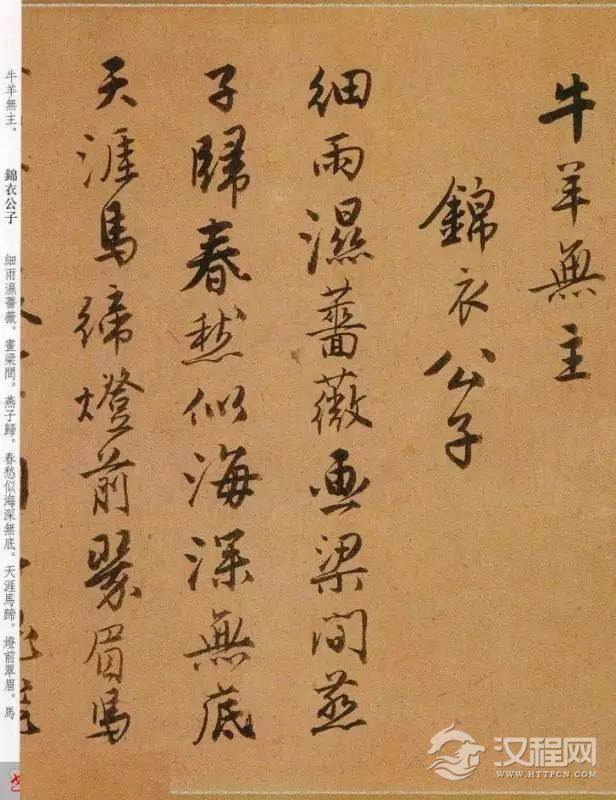 牛羊無主
錦衣公子
細雨濕薔薇画梁間燕
子歸春愁似海深無底
天涯馬締燈前翠眉馬
牛羊無主。 錦衣公子 細雨濕薔薇。畫梁間。燕子歸。春愁似海深無底。天涯馬蹄。燈前翠眉。馬
汉程网
WWW.HTTPCN.COM